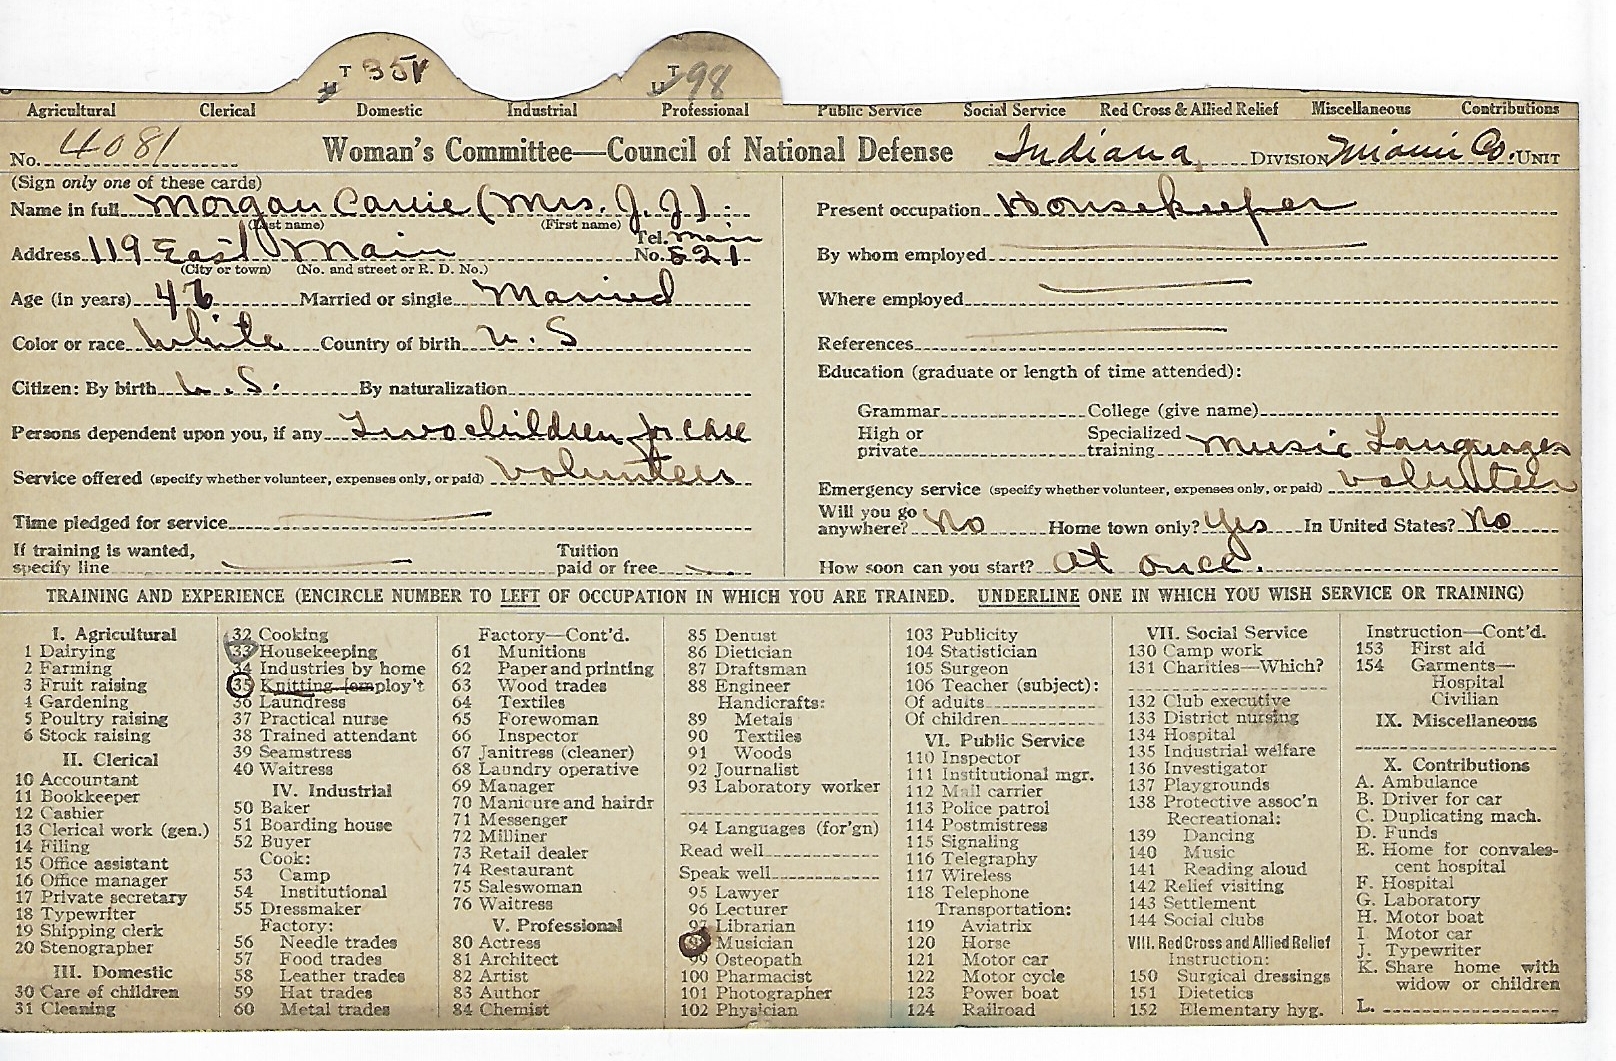 T 35V
T 98
Agricultural Clerical Domestic Industrial Professional Public Service Social Service Red Cross & Allied Relief Miscellaneous Contributions
No. 4081 Woman's Committee—Council of National Defense Indiana DIVISION Miami Co. UNIT
(Sign only one of these cards)
Name in full Morgan Carrie (Mrs. J. J.)
(Last name) (First name)
Address 119 East Main Tel. No. Main 521
(City or town) (No. and street or R. D. No.)
Age (in years) 46 Married or single Married
Color or race White Country of birth U. S
Citizen: By birth U. S. By naturalization
Persons dependent upon you, if any Two children for care
Service offered (specify whether volunteer, expenses only, or paid) Volunteer
Time pledged for service
If training is wanted, specify line Tuition paid or free
Present occupation Housekeeper
By whom employed
Where employed
References
Education (graduate or length of time attended):
Grammar College (give name)
High or private Specialized training Music Languages
Emergency service (specify whether volunteer, expenses only, or paid) Volunteer
Will you go anywhere? No Home town only? Yes In United States? No
How soon can you start? At once.
TRAINING AND EXPERIENCE (ENCIRCLE NUMBER TO LEFT OF OCCUPATION IN WHICH YOU ARE TRAINED. UNDERLINE ONE IN WHICH YOU WISH SERVICE OR TRAINING)
I. Agricultural
1 Dairying
2 Farming
3 Fruit raising
4 Gardening
5 Poultry raising
6 Stock raising
II. Clerical
10 Accountant
11 Bookkeeper
12 Cashier
13 Clerical work (gen.)
14 Filing
15 Office assistant
16 Office manager
17 Private secretary
18 Typewriter
19 Shipping clerk
20 Stenographer
III. Domestic
30 Care of children
31 Cleaning
32 Cooking
33 Housekeeping
34 Industries by home
35 Knitting (employ't
36 Laundress
37 Practical nurse
38 Trained attendant
39 Seamstress
40 Waitress
IV. Industrial
50 Baker
51 Boarding house
52 Buyer
Cook:
53 Camp
54 Institutional
55 Dressmaker
Factory:
56 Needle trades
57 Food trades
58 Leather trades
59 Hat trades
60 Metal trades
Factory—Cont'd.
61 Munitions
62 Paper and printing
63 Wood trades
64 Textiles
65 Forewoman
66 Inspector
67 Janitress (cleaner)
68 Laundry operative
69 Manager
70 Manicure and hairdr
71 Messenger
72 Milliner
73 Retail dealer
74 Restaurant
75 Saleswoman
76 Waitress
V. Professional
80 Actress
81 Architect
82 Artist
83 Author
84 Chemist
85 Dentist
86 Dietician
87 Draftsman
88 Engineer
Handicrafts:
89 Metals
90 Textiles
91 Woods
92 Journalist
93 Laboratory worker
94 Languages (for'gn)
Read well
Speak well
95 Lawyer
96 Lecturer
97 Librarian
98 Musician
99 Osteopath
100 Pharmacist
101 Photographer
102 Physician
103 Publicity
104 Statistician
105 Surgeon
106 Teacher (subject):
Of adults
Of children
VI. Public Service
110 Inspector
111 Institutional mgr.
112 Mail carrier
113 Police patrol
114 Postmistress
115 Signaling
116 Telegraphy
117 Wireless
118 Telephone
Transportation:
119 Aviatrix
120 Horse
121 Motor car
122 Motor cycle
123 Power boat
124 Railroad
VII. Social Service
130 Camp work
131 Charities—Which?
132 Club executive
133 District nursing
134 Hospital
135 Industrial welfare
136 Investigator
137 Playgrounds
138 Protective assoc'n
Recreational:
139 Dancing
140 Music
141 Reading aloud
142 Relief visiting
143 Settlement
144 Social clubs
VIII. Red Cross and Allied Relief
Instruction:
150 Surgical dressings
151 Dietetics
152 Elementary hyg.
Instruction—Cont'd.
153 First aid
154 Garments—
Hospital
Civilian
IX. Miscellaneous
X. Contributions
A. Ambulance
B. Driver for car
C. Duplicating mach.
D. Funds
E. Home for convales-
cent hospital
F. Hospital
G. Laboratory
H. Motor boat
I. Motor car
J. Typewriter
K. Share home with
widow or children
L.